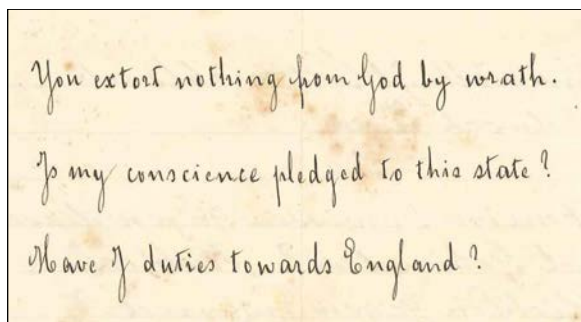 You extort nothing from God by wrath.
Is my conscience pledged to this state?
Have I duties towards England?